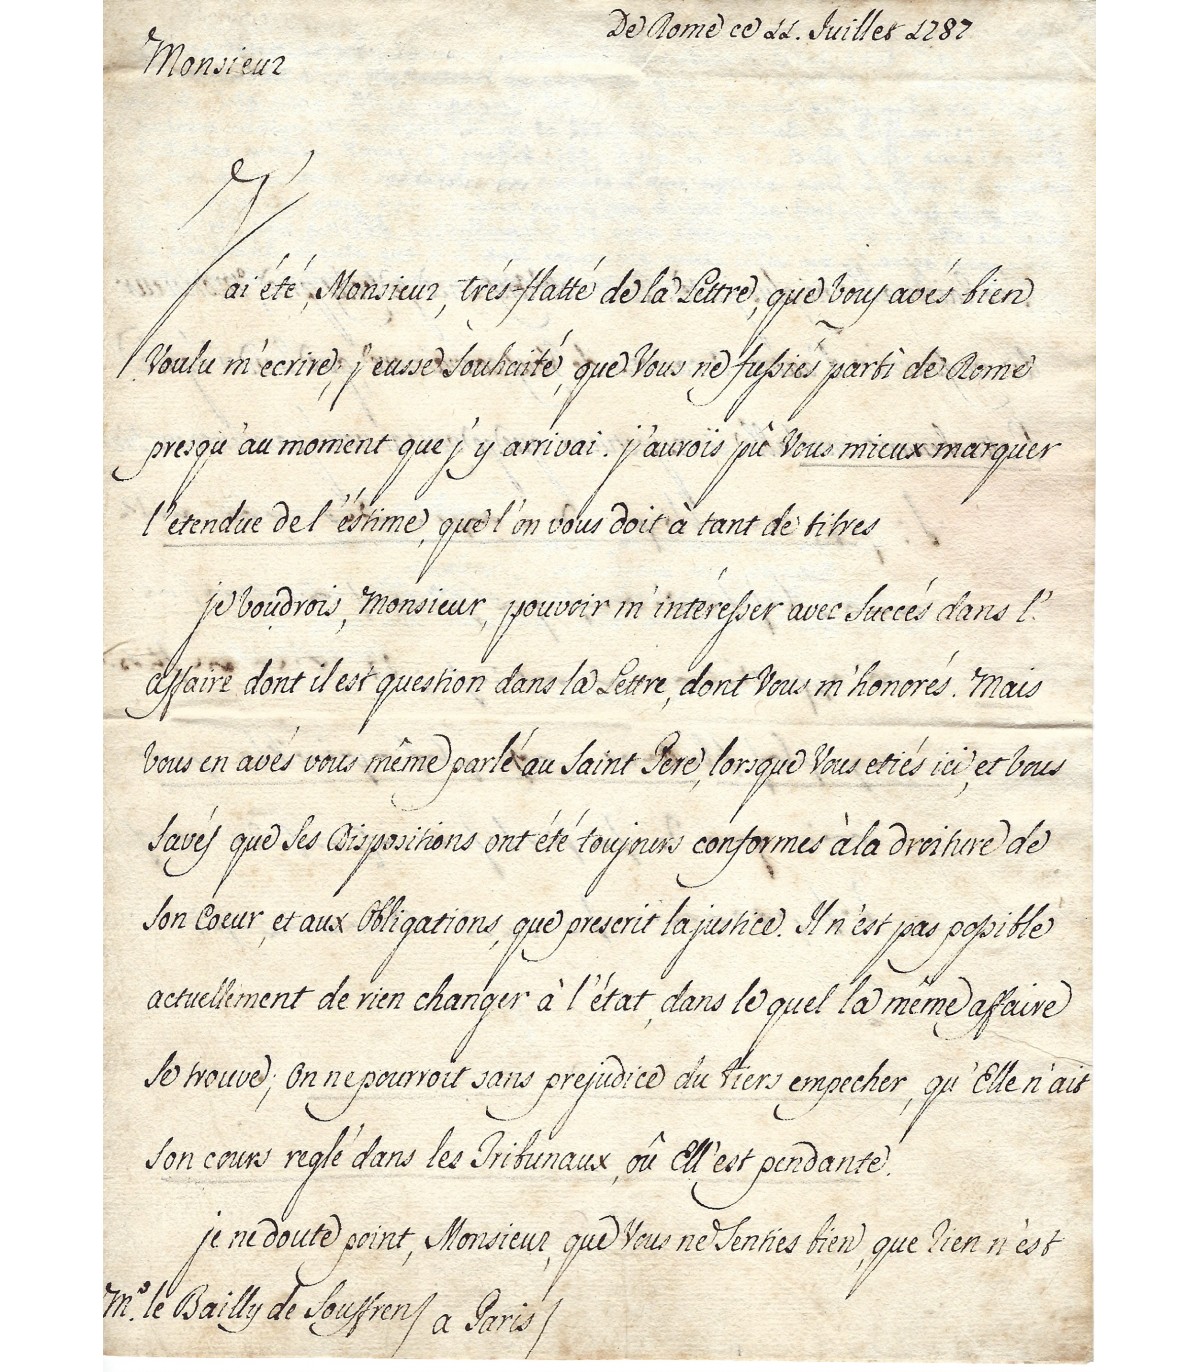 De Rome ce 11. Juillet 1787
Monsieur
J'ai été, Monsieur, trés-flatté de la Lettre, que vous avés bien
Voulu m'ecrire; j'eusse souhaité, que Vous ne fussiés parti de Rome
presqu'au moment que j'y arrivai. j'auroïs pû Vous mieux marquer
l'etendue de l'éstime, que l'on vous doit à tant de titres
je voudrois, Monsieur, pouvoir m'intéresser avec Succés dans l'
affaire dont il est question dans la Lettre, dont Vous m'honorés. Mais
vous en avés vous même parlé au Saint Pere, lorsque Vous etiés ici, et vous
savés que Ses Dispositions ont été toujours conformes à la droiture de
Son Coeur, et aux Obligations, que prescrit la justice. Il n'est pas possible
actuellement de rien changer à l'état, dans le quel la même affaire
se trouve; On ne pourroit sans prejudice du tiers empecher, qu'Elle n'ait
son cours reglé dans les Tribunaux, oû Ell'est pendante.
je ne doute point, Monsieur, que Vous ne Senties bien, que rien n'est
Mr. le Bailly de Souffren / a Paris /